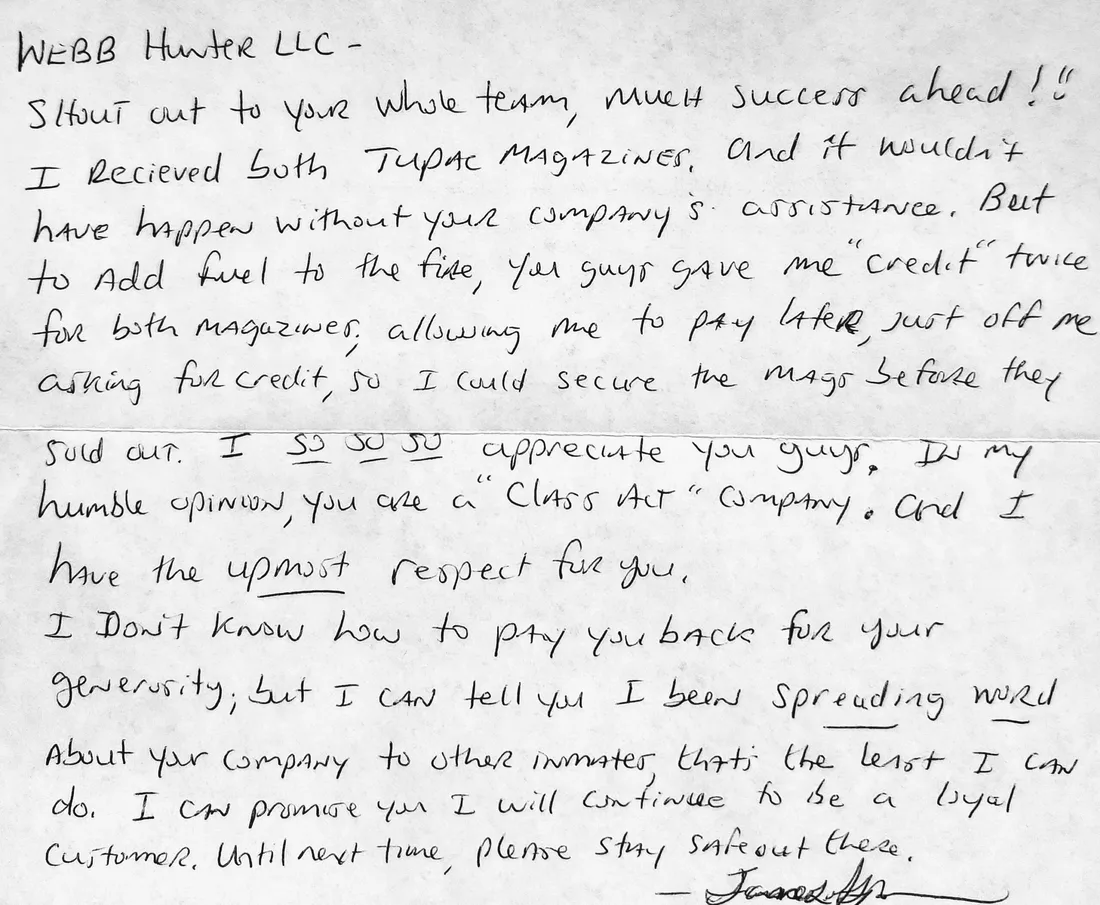 WEBB Hunter LLC -
SHout out to your whole team, much success ahead!!
I Recieved both Tupac Magazines. And it wouldn't
have happen without your company's assistance. But
to Add fuel to the fire, you guys gave me "credit" twice
for both magazines; allowing me to pay later, just off me
asking for credit, so I could secure the mags before they
sold out. I so so so appreciate you guys. In my
humble opinion, you are a "Class Act" company. And I
have the upmost respect for you.
I Don't know how to pay you back for your
generosity; but I can tell you I been spreading word
About your company to other inmates, that's the least I can
do. I can promise you I will continue to be a loyal
customer. Until next time, please stay safe out there.